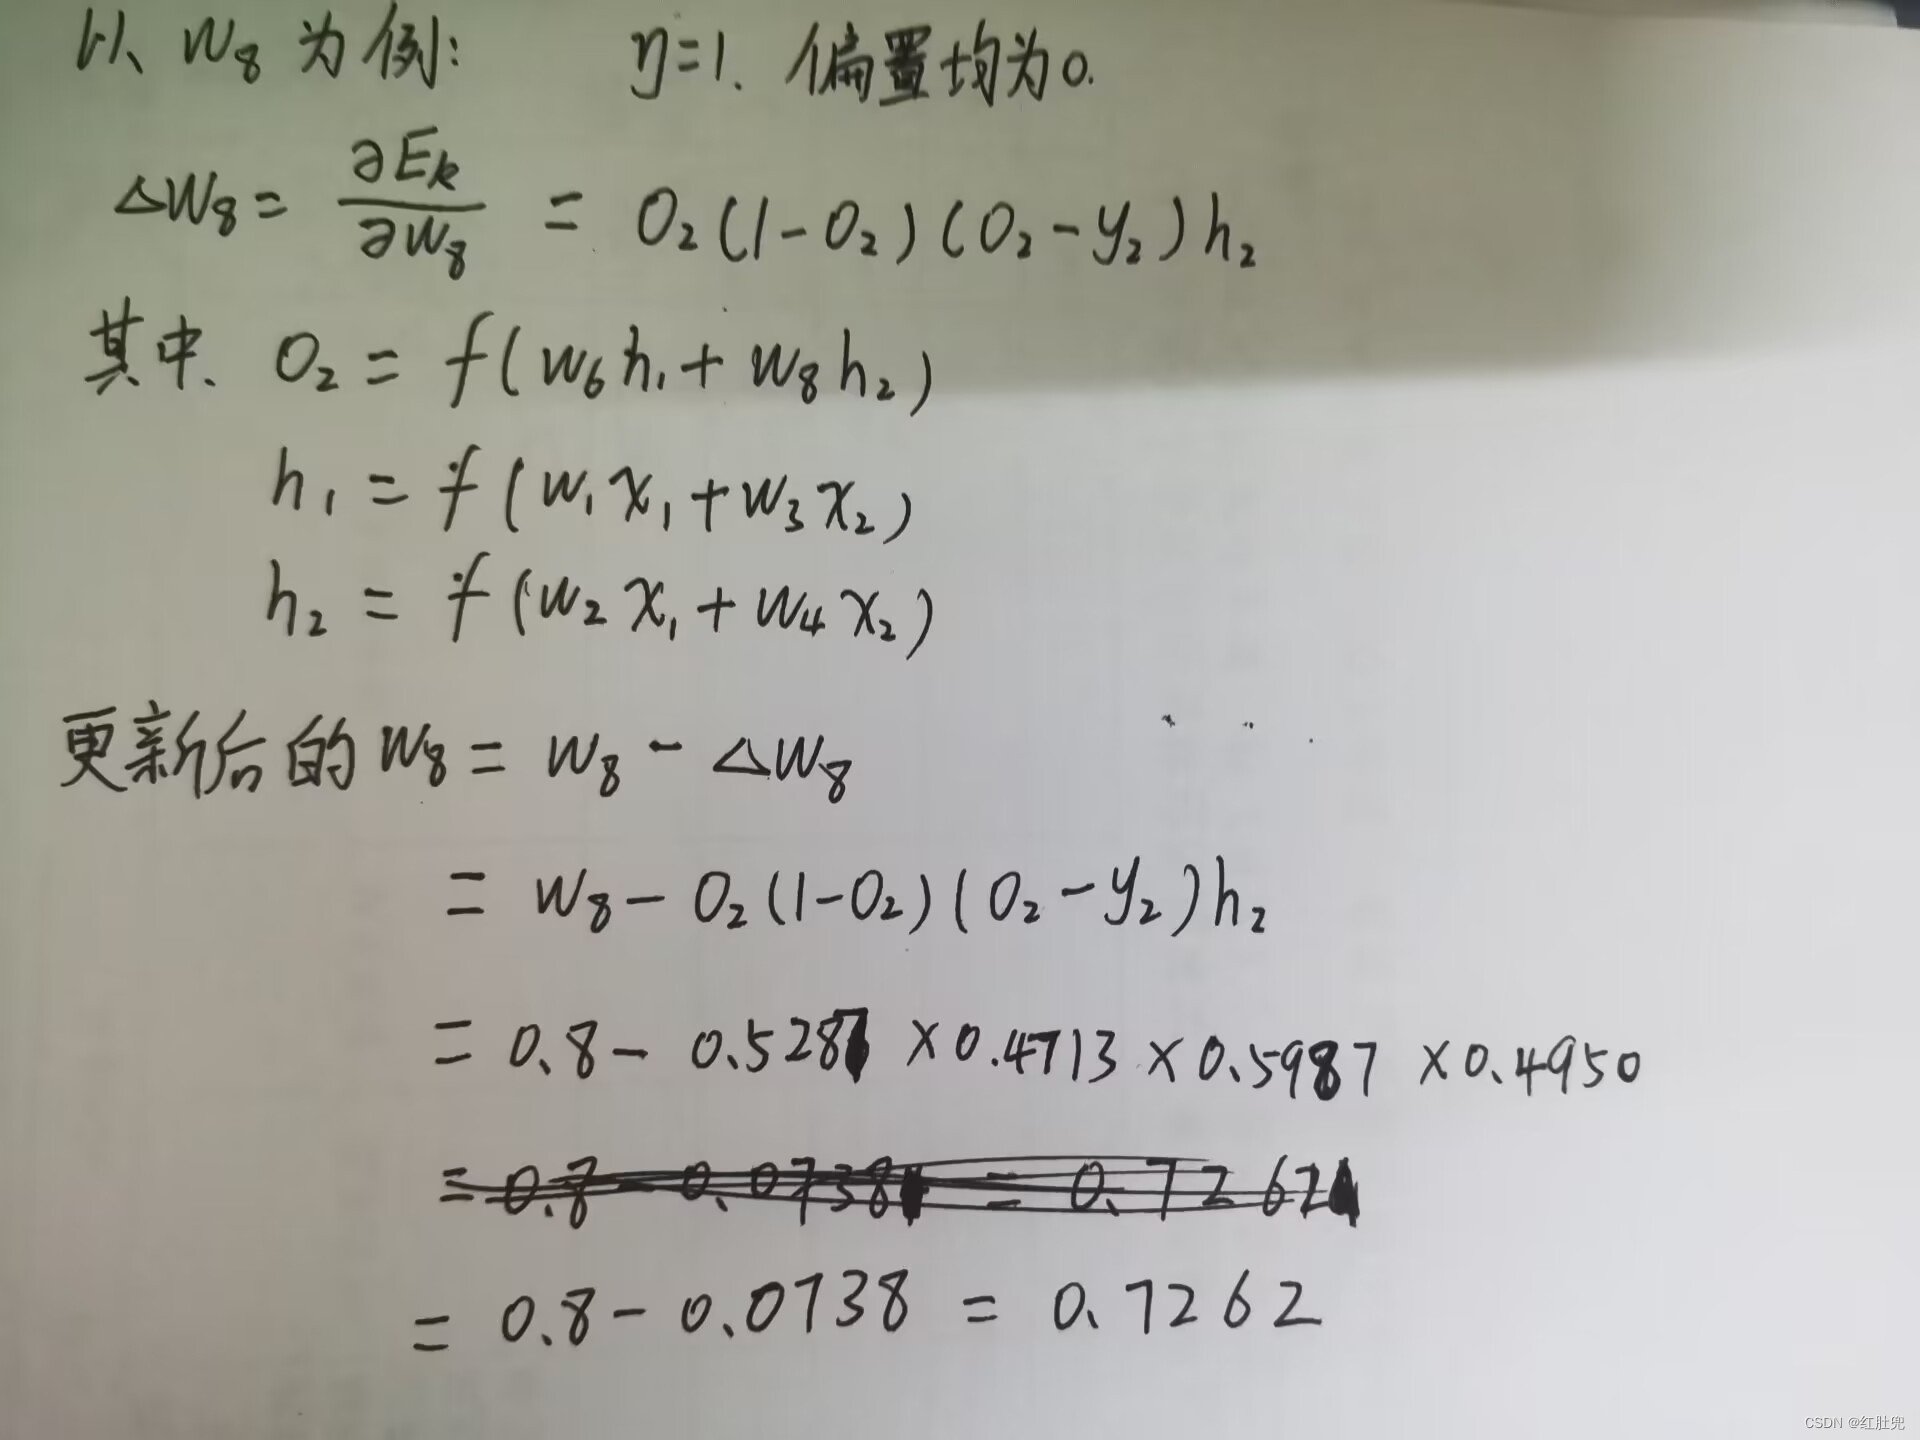 以 W₈ 为例: η=1. 偏置均为0.
△W₈ = ∂Eₖ/∂W₈ = O₂(1-O₂)(O₂-y₂)h₂
其中. O₂ = f(W₆h₁+W₈h₂)
h₁ = f(W₁x₁+W₃x₂)
h₂ = f(W₂x₁+W₄x₂)
更新后的W₈ = W₈ - △W₈
= W₈ - O₂(1-O₂)(O₂-y₂)h₂
= 0.8 - 0.5287 ×0.4713 ×0.5987 ×0.4950
= 0.8 - 0.0738 = 0.7262
= 0.8 - 0.0738 = 0.7262
CSDN @红肚兜